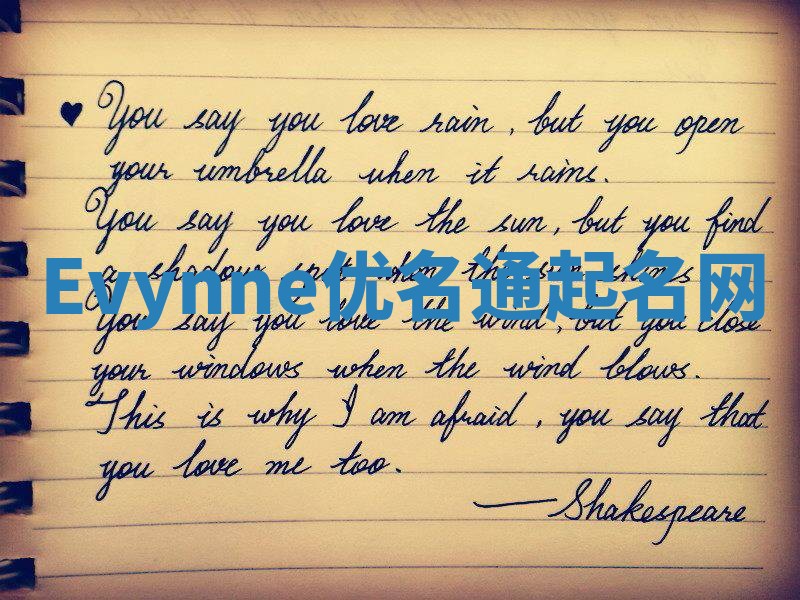 ♥ You say you love rain, but you open
your umbrella when it rains.
You say you love the sun, but you find
a shadow spot when the sun shines
Evynne优名通起名网
You say you love the wind, but you close
your windows when the wind blows.
This is why I am afraid, you say that
you love me too.
—Shakespeare